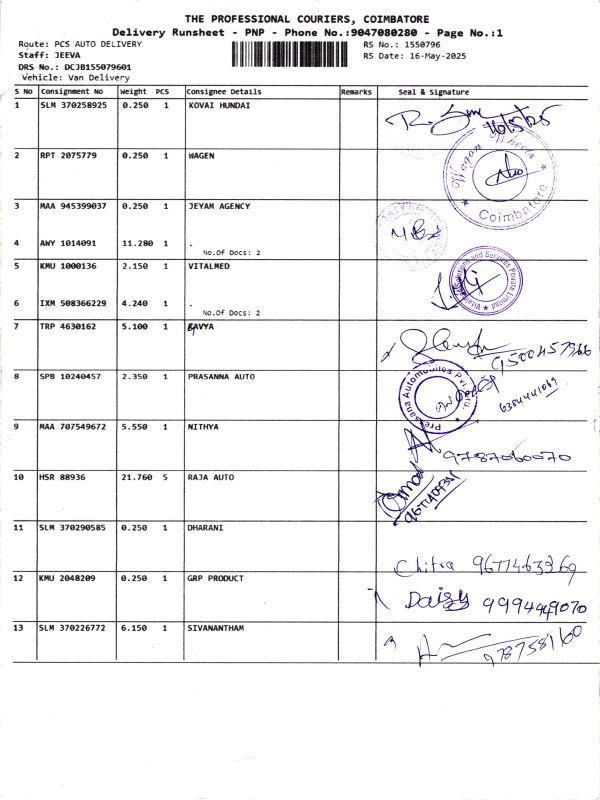 THE PROFESSIONAL COURIERS, COIMBATORE
Delivery Runsheet - PNP - Phone No.:9047080280 - Page No.:1
Route: PCS AUTO DELIVERY RS No.: 1550796
Staff: JEEVA RS Date: 16-May-2025
DRS No.: DCJB155079601
Vehicle: Van Delivery
S No Consignment No Weight PCS Consignee Details Remarks Seal & Signature
1 SLM 370258925 0.250 1 KOVAI HUNDAI
16/5/25
2 RPT 2075779 0.250 1 WAGEN
Wagon Wheels
Coimbatore
3 MAA 945399037 0.250 1 JEYAM AGENCY
4 AWY 1014091 11.280 1 .
No.Of Docs: 2
5 KMU 1000136 2.150 1 VITALMED
Solutions and Services Private Limited
6 IXM 508366229 4.240 1 .
No.Of Docs: 2
7 TRP 4630162 5.100 1 BAVYA
8 SPB 10240457 2.350 1 PRASANNA AUTO
Prassana Automobiles Pvt.
9 MAA 707549672 5.550 1 NITHYA
9787060070
10 HSR 88936 21.760 5 RAJA AUTO
11 SLM 370290585 0.250 1 DHARANI
Chitra 9677463369
12 KMU 2048209 0.250 1 GRP PRODUCT
Daisy 9994449070
13 SLM 370226772 6.150 1 SIVANANTHAM